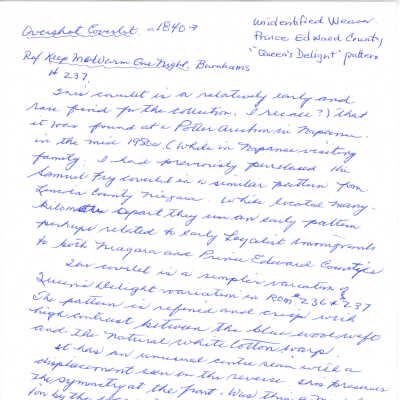 Overshot Coverlet c1840 →
Unidentified Weaver
Prince Edward County
"Queen's Delight" pattern
Ref Keep Me Warm One Night, Burnhams
# 237.
This coverlet is a relatively early and
rare find for the collection. I recall that
it was found at a Potter Auction in Napanee
in the mid 1980s (while in Napanee visiting
family. I had previously purchased the
Samuel Fry coverlet in a similar pattern from
Lincoln County Niagara. While located many
kilometres apart they use an early pattern
perhaps related to early Loyalist immigrants
to both Niagara and Prince Edward Counties
This coverlet is a simpler variation of
Queen's Delight variation in ROM # 236 & 237
The pattern is refined and crisp with
high contrast between the blue wool weft
and the natural white cotton warp.
It has an unusual centre seam with a
displacement seen on the reverse
the symmetry at the front. Was this a
ion by the